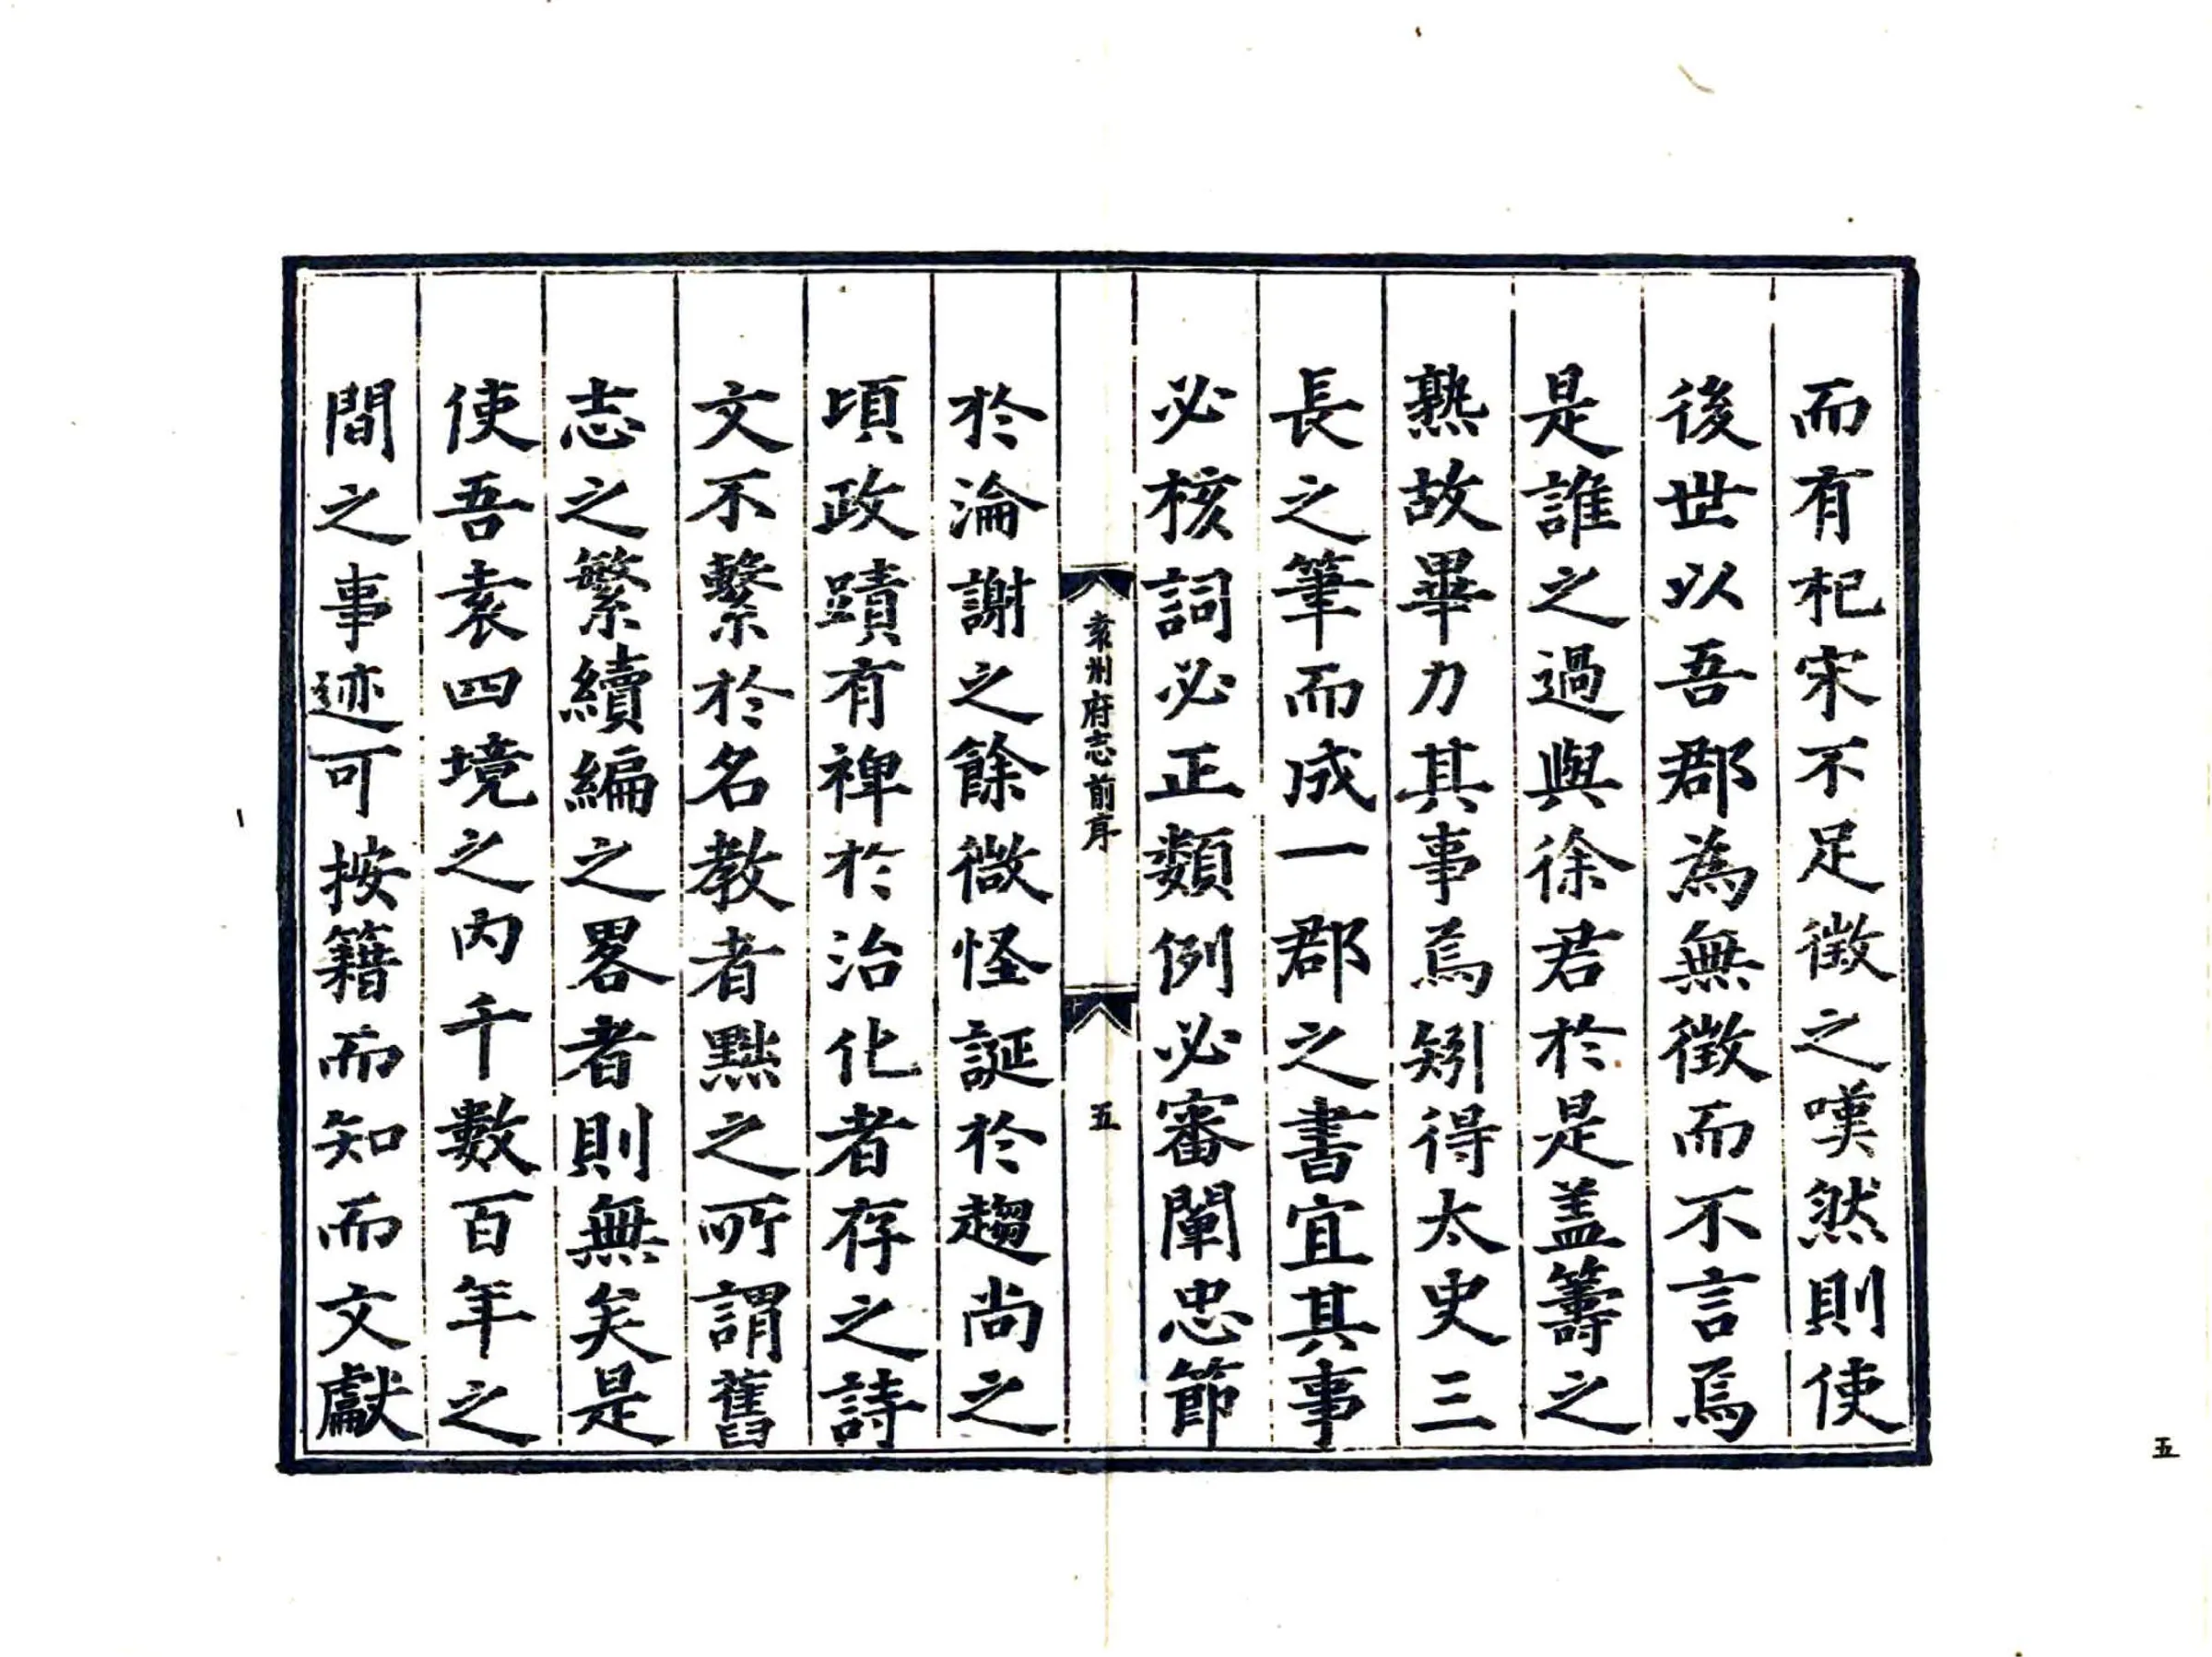 而有杞宋不足徵之嘆然則使
後世以吾郡為無徵而不言焉
是誰之過與徐君於是盖籌之
熟故畢力其事焉矧得太史三
長之筆而成一郡之書宜其事
必核詞必正類例必審闡忠節
袁州府志前序
五
於淪謝之餘微怪誕於趨尚之
頃政蹟有裨於治化者存之詩
文不繫於名教者黜之所謂舊
志之繁續編之畧者則無矣是
使吾袁四境之内千數百年之
間之事迹可按籍而知而文獻
五